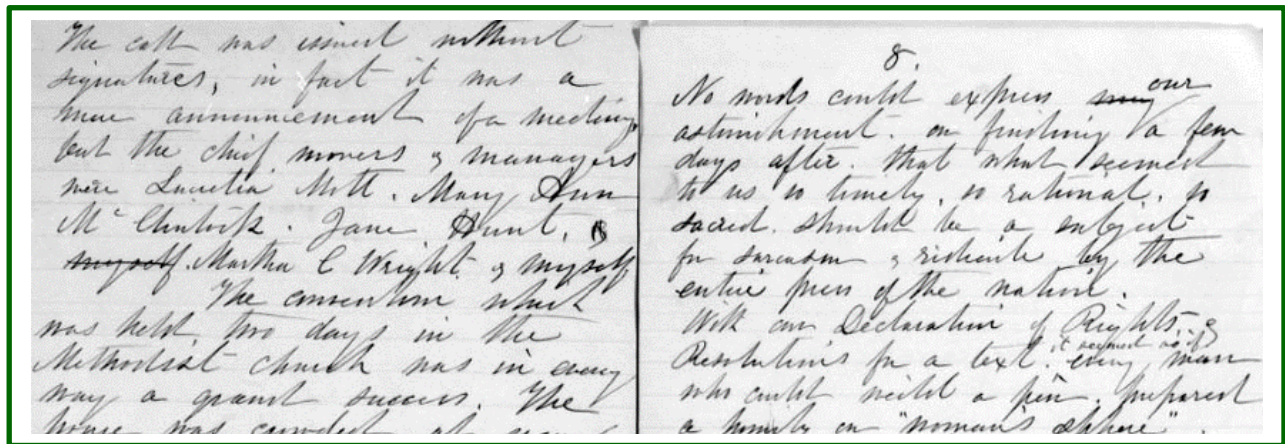 The call was issued without
signatures, in fact it was a
mere announcement of a meeting,
but the chief movers & managers
were Lucretia Mott. Mary Ann
McClintock. Jane Hunt, &
myself. Martha C Wright, & myself
The convention which
was held two days in the
Methodist church was in every
way a grand success. The
house was crowded at
8.
No words could express my our
astonishment. on finding a few
days after. that what seemed
to us so timely, so rational, so
sacred. should be a subject
for sarcasm & ridicule by the
entire press of the nation.
With our Declaration of Rights &
Resolutions for a text. it seemed as if every man
who could wield a pen. prepared
a homily on "woman's sphere".